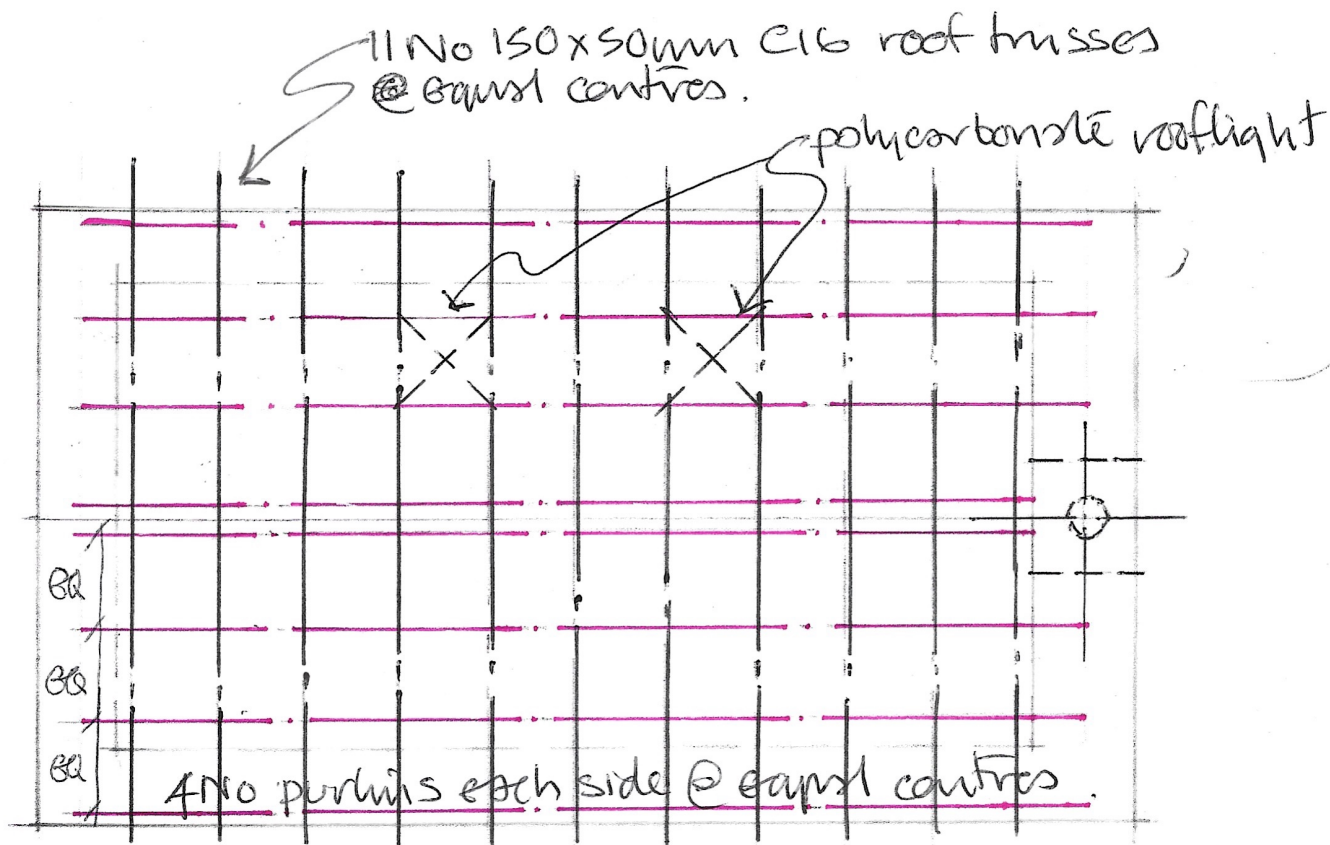 11No 150x50mm C16 roof trusses
@ equal centres.
polycarbonate rooflight
EQ
EQ
EQ
4No purlins each side @ equal centres.